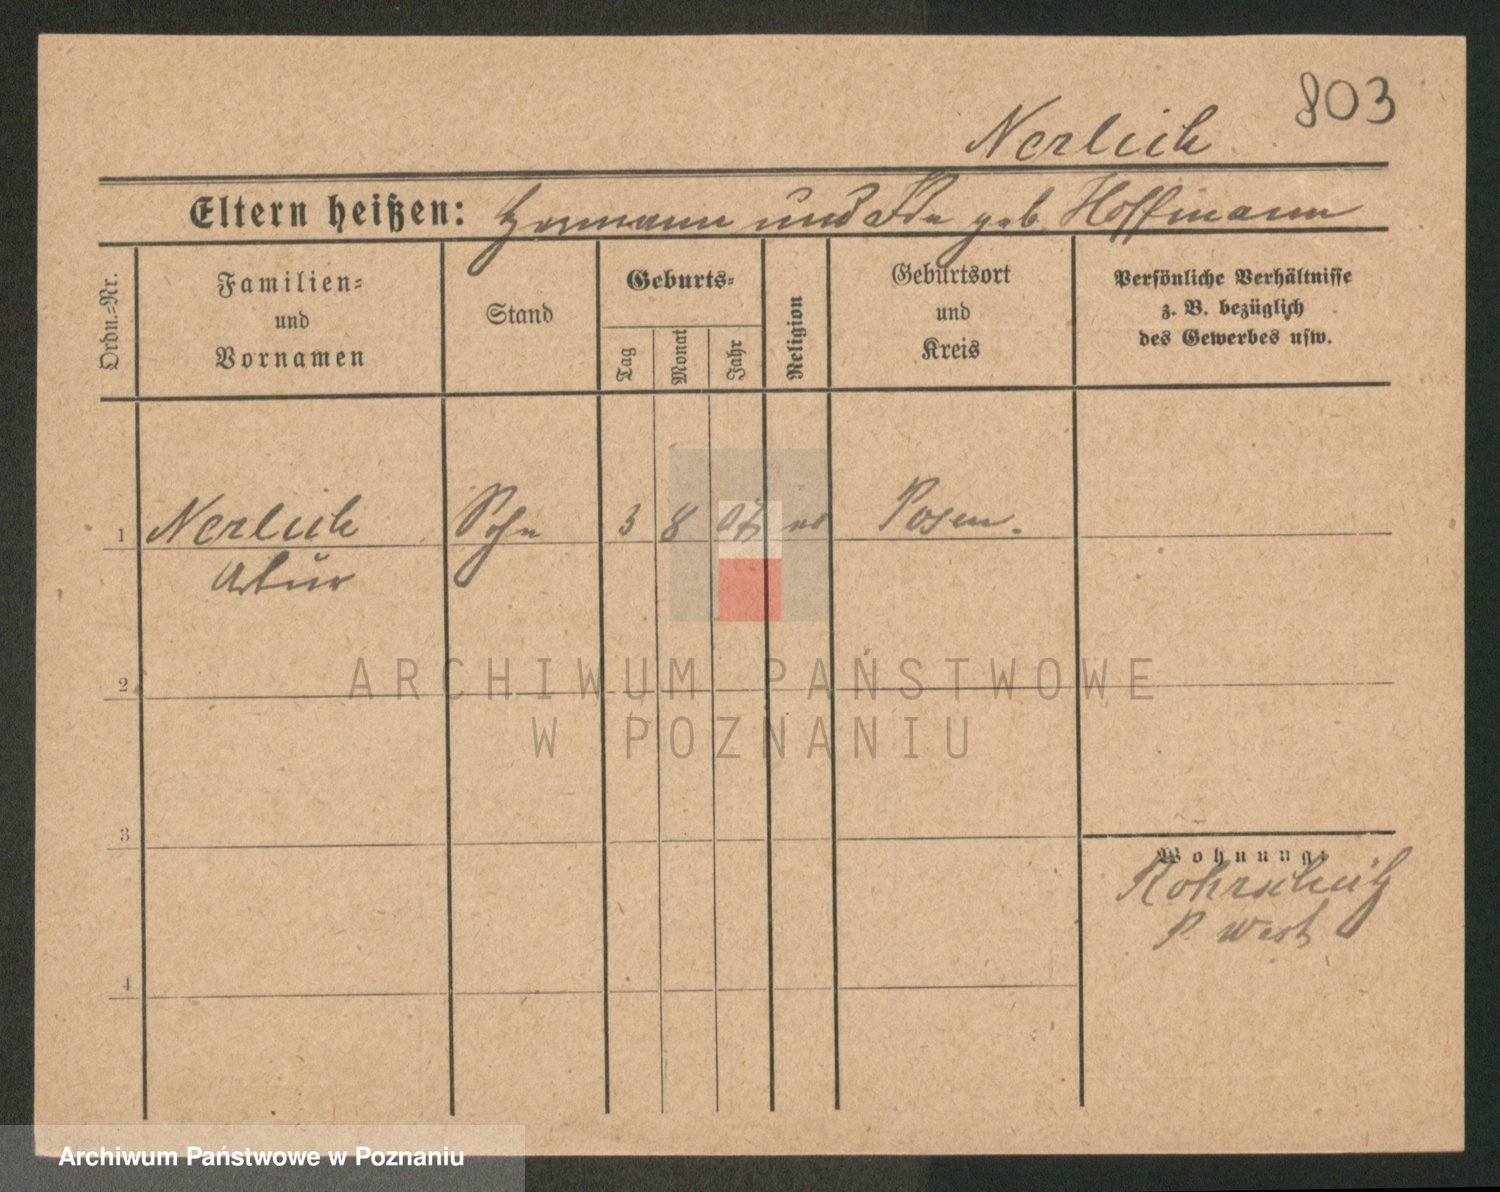 803
Nerlich
Eltern heißen: Hermann und Ida geb. Hoffmann
Ordn.-Nr.
Familien- und Vornamen
Stand
Geburts-
Tag
Monat
Jahr
Religion
Geburtsort und Kreis
Persönliche Verhältnisse z. B. bezüglich des Gewerbes usw.
1 Nerlich Sohn 3 8 07 Posen.
Artur
2
3
4
Wohnung:
P. West
ARCHIWUM PAŃSTWOWE
W POZNANIU
Archiwum Państwowe w Poznaniu